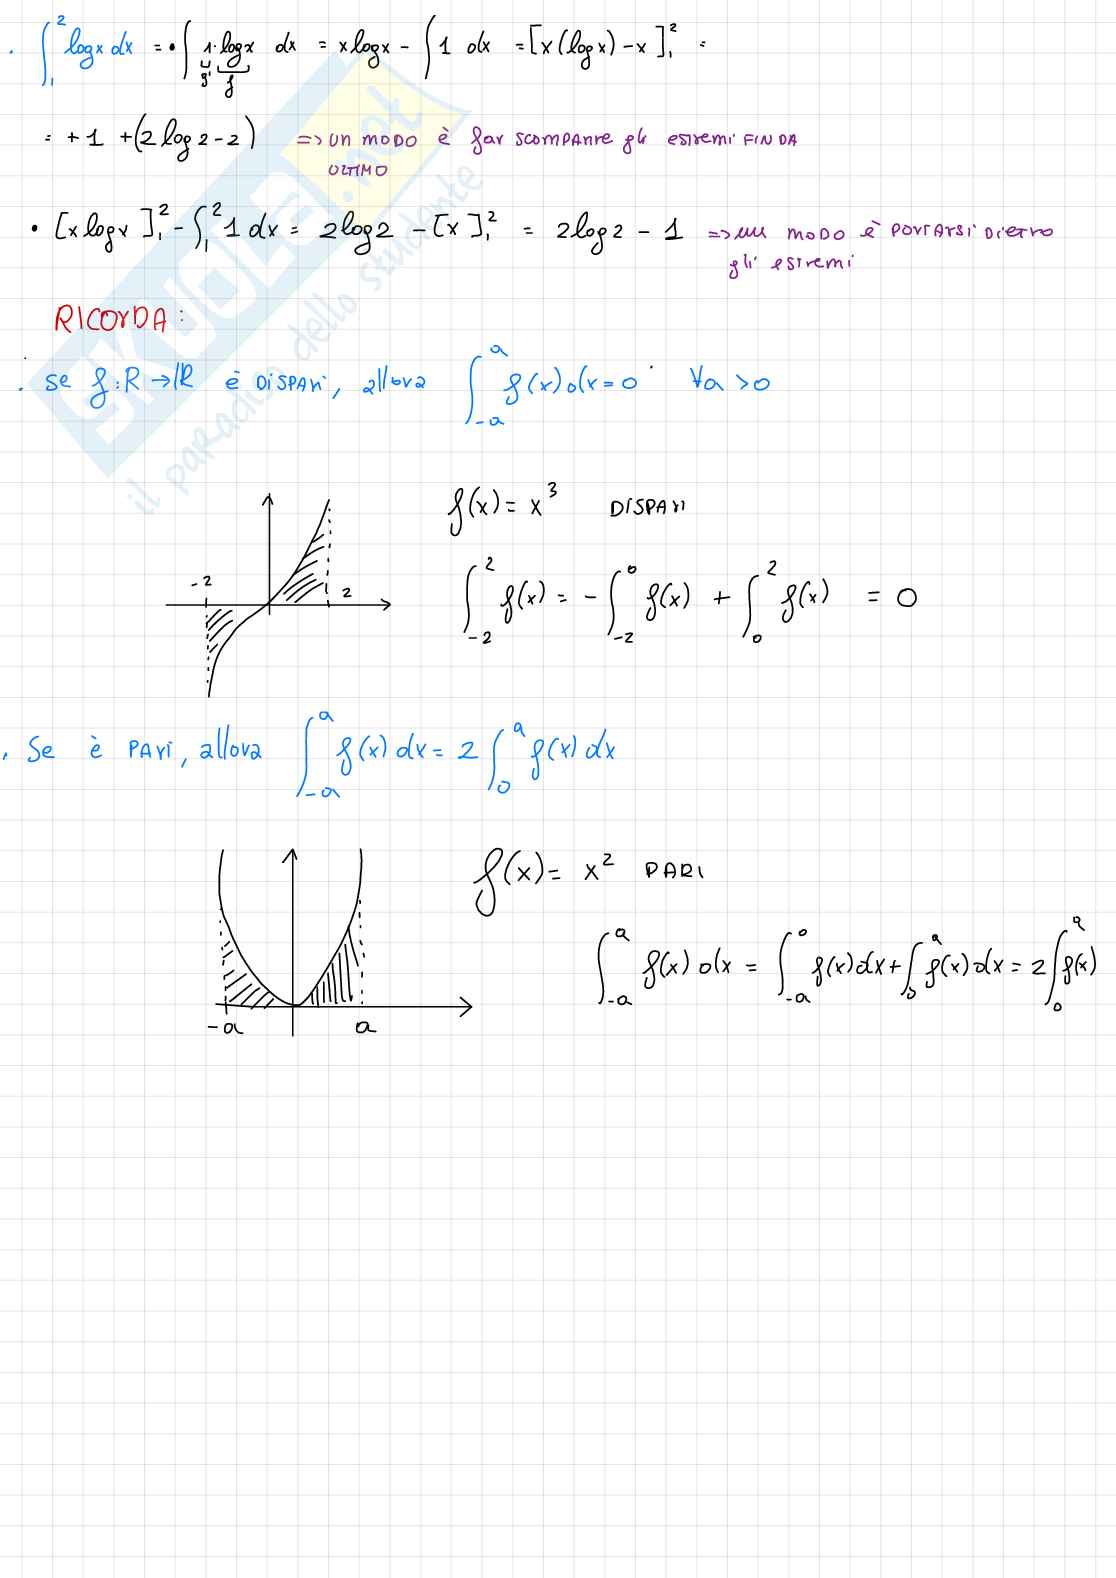 . ∫₁² log x dx = • ∫ 1·log x dx = x log x - ∫ 1 dx = [x (log x) - x]₁² =
g' f
= +1 + (2 log 2 - 2) => UN MODO è far scomparire gli estremi FIN DA
ULTIMO
• [x log x]₁² - ∫₁² 1 dx = 2 log 2 - [x]₁² = 2 log 2 - 1 => un modo è portarsi dietro
gli estremi
RICORDA:
. Se f: R → R è DISPARI, allora ∫₋ₐᵃ f(x) dx = 0 ∀a > 0
f(x) = x³ DISPARI
-2 2
∫₋₂² f(x) = - ∫₋₂⁰ f(x) + ∫₀² f(x) = 0
. Se è PARI, allora ∫₋ₐᵃ f(x) dx = 2 ∫₀ᵃ f(x) dx
f(x) = x² PARI
∫₋ₐᵃ f(x) dx = ∫₋ₐ⁰ f(x) dx + ∫₀ᵃ f(x) dx = 2 ∫₀ᵃ f(x)
-a a
SKUOLA.net
il paradiso dello studente